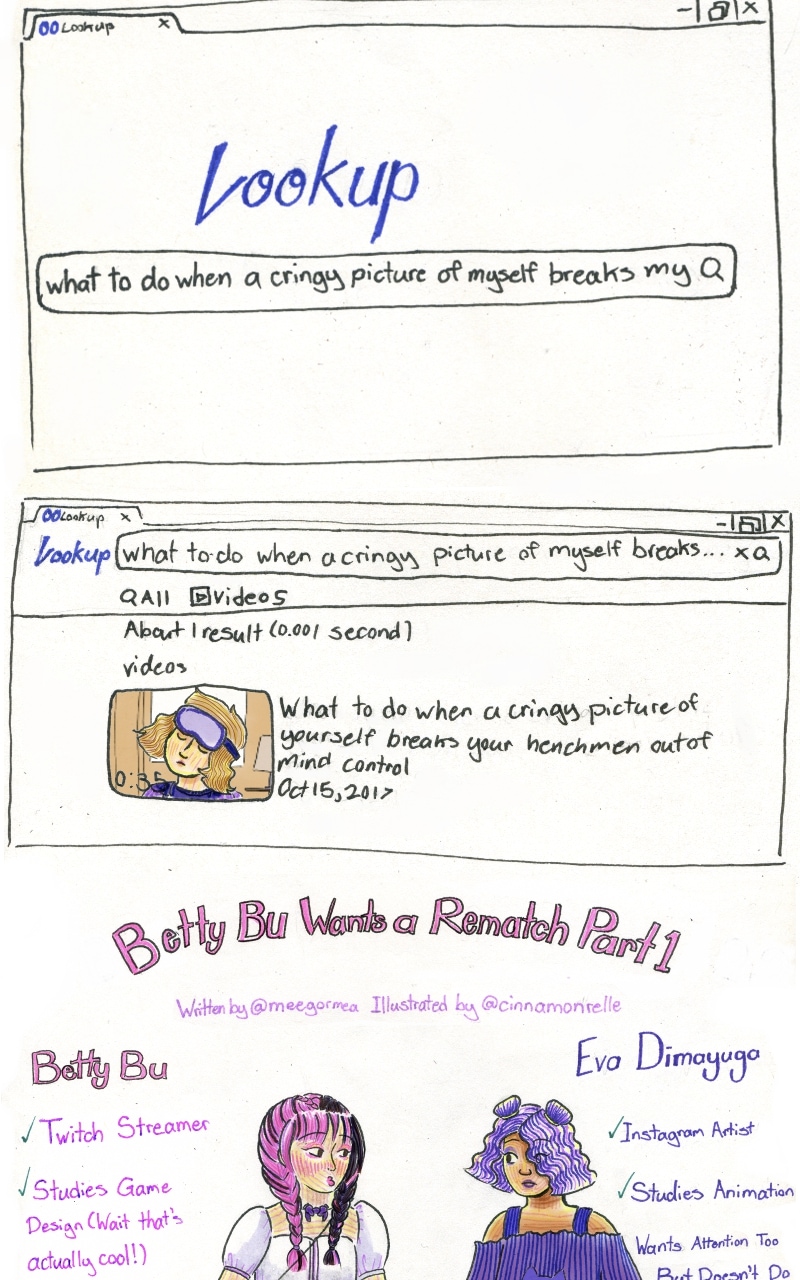 Lookup x
Lookup
what to do when a cringy picture of myself breaks my
Lookup x
Lookup what to do when a cringy picture of myself breaks... x
All Videos
About 1 result (0.001 second)
videos
0:35
What to do when a cringy picture of
yourself breaks your henchmen out of
mind control
Oct 15, 2017
Betty Bu Wants a Rematch Part 1
Written by @meegormea Illustrated by @cinnamonrelle
Betty Bu
✓ Twitch Streamer
✓ Studies Game
Design (Wait that's
actually cool!)
Eva Dimayuga
✓ Instagram Artist
✓ Studies Animation
Wants Attention Too
But Doesn't Do